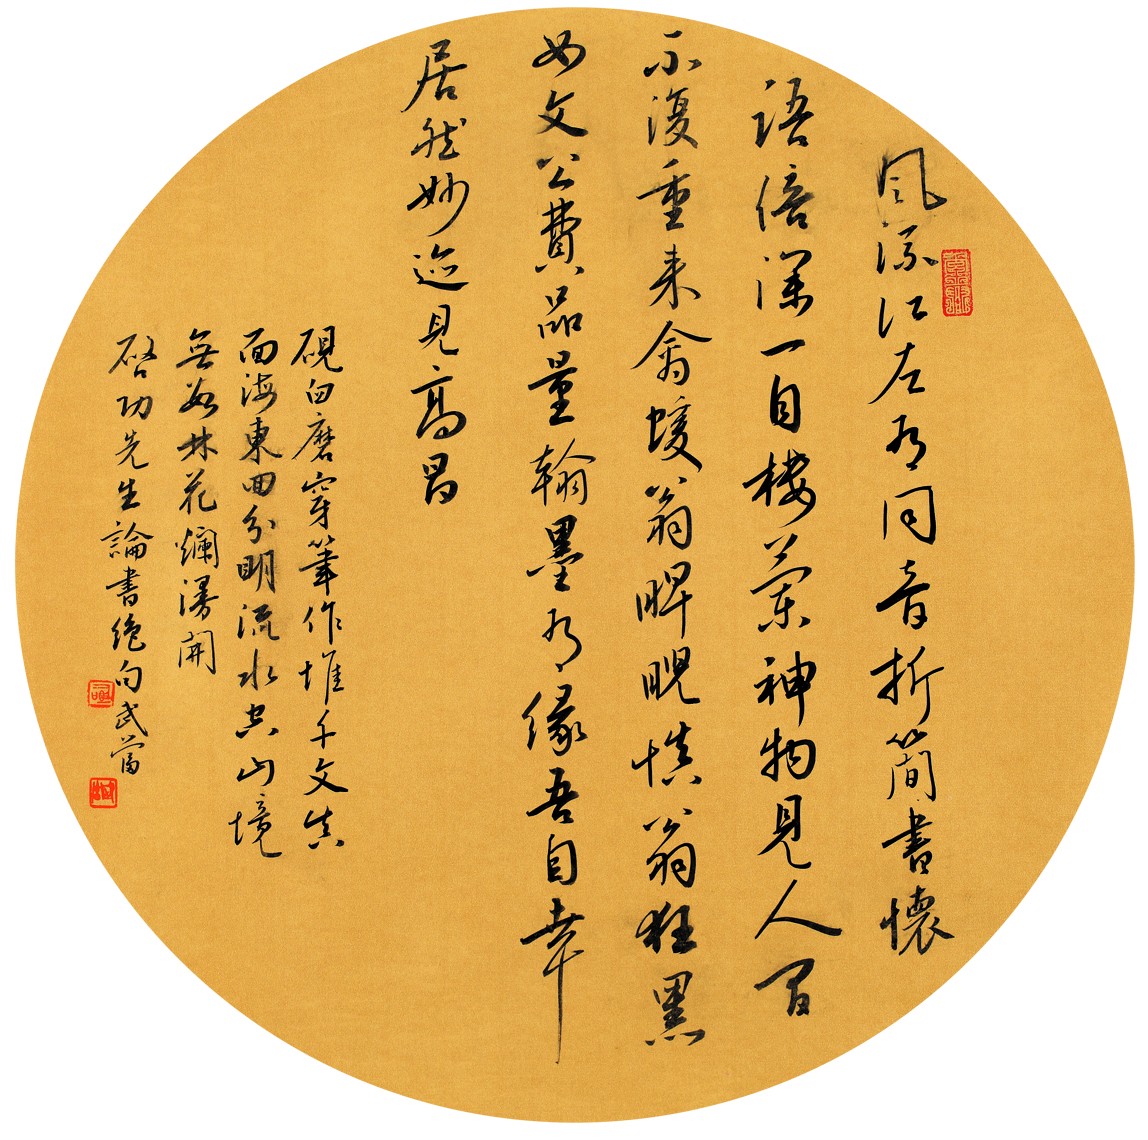 風流江左有同音折簡書懷
語倍深一自樓蘭神物見人間
不復重来禽蝯翁睥睨慎翁狂黑
女文公費品量翰墨有緣吾自幸
居然妙迹見高昌
硯臼磨穿筆作堆千文真
面海東回分明流水空山境
無數林花爛漫開
啓功先生論書絕句武當